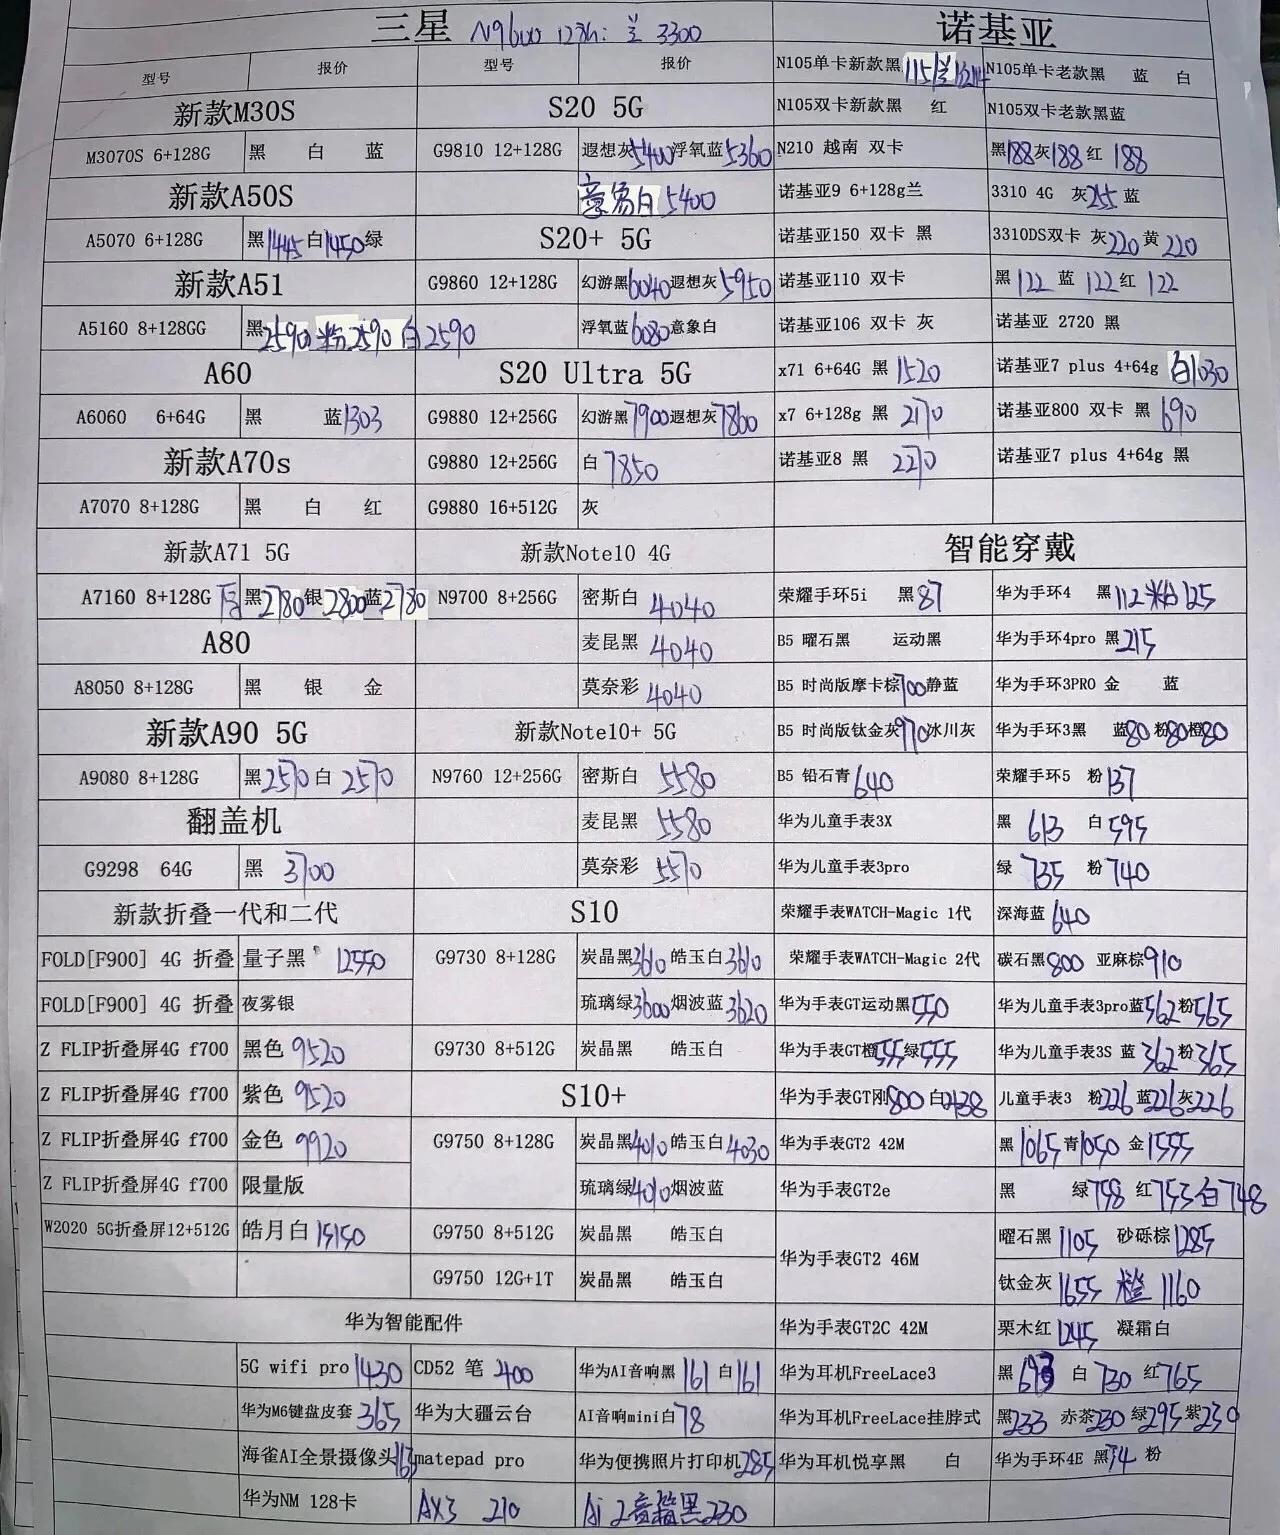 三星 N9600 128G: 兰 3300
诺基亚
型号 报价 型号 报价
N105单卡新款黑 115 兰 N105单卡老款黑 蓝 白
新款M30S S20 5G
N105双卡新款黑 红 N105双卡老款黑蓝
M3070S 6+128G 黑 白 蓝 G9810 12+128G 遐想灰5400浮氧蓝5360 N210 越南 双卡 黑188灰188红 188
新款A50S 意象白 5400 诺基亚9 6+128g兰 3310 4G 灰255 蓝
A5070 6+128G 黑1445白1450绿 S20+ 5G 诺基亚150 双卡 黑 3310DS双卡 灰220黄220
新款A51 G9860 12+128G 幻游黑6040遐想灰5950 诺基亚110 双卡 黑122 蓝 122红 122
A5160 8+128GG 黑2590 粉2590 白2590 浮氧蓝6080意象白 诺基亚106 双卡 灰 诺基亚 2720 黑
A60 S20 Ultra 5G x71 6+64G 黑 1520 诺基亚7 plus 4+64g 白1030
A6060 6+64G 黑 蓝1303 G9880 12+256G 幻游黑7900遐想灰7860 x7 6+128g 黑 2170 诺基亚800 双卡 黑 690
新款A70s G9880 12+256G 白 7850 诺基亚8 黑 2270 诺基亚7 plus 4+64g 黑
A7070 8+128G 黑 白 红 G9880 16+512G 灰
新款A71 5G 新款Note10 4G 智能穿戴
A7160 8+128G 黑2780银2800蓝2780 N9700 8+256G 密斯白 4040 荣耀手环5i 黑87 华为手环4 黑112粉125
A80 麦昆黑 4040 B5 曜石黑 运动黑 华为手环4pro 黑215
A8050 8+128G 黑 银 金 莫奈彩 4040 B5 时尚版摩卡棕700静蓝 华为手环3PRO 金 蓝
新款A90 5G 新款Note10+ 5G B5 时尚版钛金灰970冰川灰 华为手环3黑 蓝80粉80橙80
A9080 8+128G 黑2570白 2570 N9760 12+256G 密斯白 5580 B5 铅石青640 荣耀手环5 粉137
翻盖机 麦昆黑 5580 华为儿童手表3X 黑 613 白595
G9298 64G 黑 3700 莫奈彩 5570 华为儿童手表3pro 绿 735 粉740
新款折叠一代和二代 S10 荣耀手表WATCH-Magic 1代 深海蓝640
FOLD[F900] 4G 折叠 量子黑 12550 G9730 8+128G 炭晶黑3610皓玉白3610 荣耀手表WATCH-Magic 2代 碳石黑800 亚麻棕910
FOLD[F900] 4G 折叠 夜雾银 琉璃绿3600烟波蓝3620 华为手表GT运动黑550 华为儿童手表3pro蓝562粉565
Z FLIP折叠屏4G f700 黑色 9520 G9730 8+512G 炭晶黑 皓玉白 华为手表GT橙555绿555 华为儿童手表3S 蓝362粉365
Z FLIP折叠屏4G f700 紫色 9520 S10+ 华为手表GT刚800白 儿童手表3 粉226蓝226灰226
Z FLIP折叠屏4G f700 金色 9920 G9750 8+128G 炭晶黑4010皓玉白4030 华为手表GT2 42M 黑1065青1050金1555
Z FLIP折叠屏4G f700 限量版 琉璃绿4010烟波蓝 华为手表GT2e 黑 绿758红753白748
W2020 5G折叠屏12+512G 皓月白 15150 G9750 8+512G 炭晶黑 皓玉白 华为手表GT2 46M 曜石黑1105 砂砾棕1285
G9750 12G+1T 炭晶黑 皓玉白 钛金灰1655 橙 1160
华为智能配件 华为手表GT2C 42M 栗木红1245 凝霜白
5G wifi pro1430 CD52 笔 400 华为AI音响黑161白161 华为耳机FreeLace3 黑 白730红765
华为M6键盘皮套365 华为大疆云台 AI音响mini白78 华为耳机FreeLace挂脖式 黑233 赤茶230绿295紫230
海雀AI全景摄像头163 matepad pro 华为便携照片打印机285 华为耳机悦享黑 白 华为手环4E 黑74 粉
华为NM 128卡 AX3 210 Ai 2音箱黑230